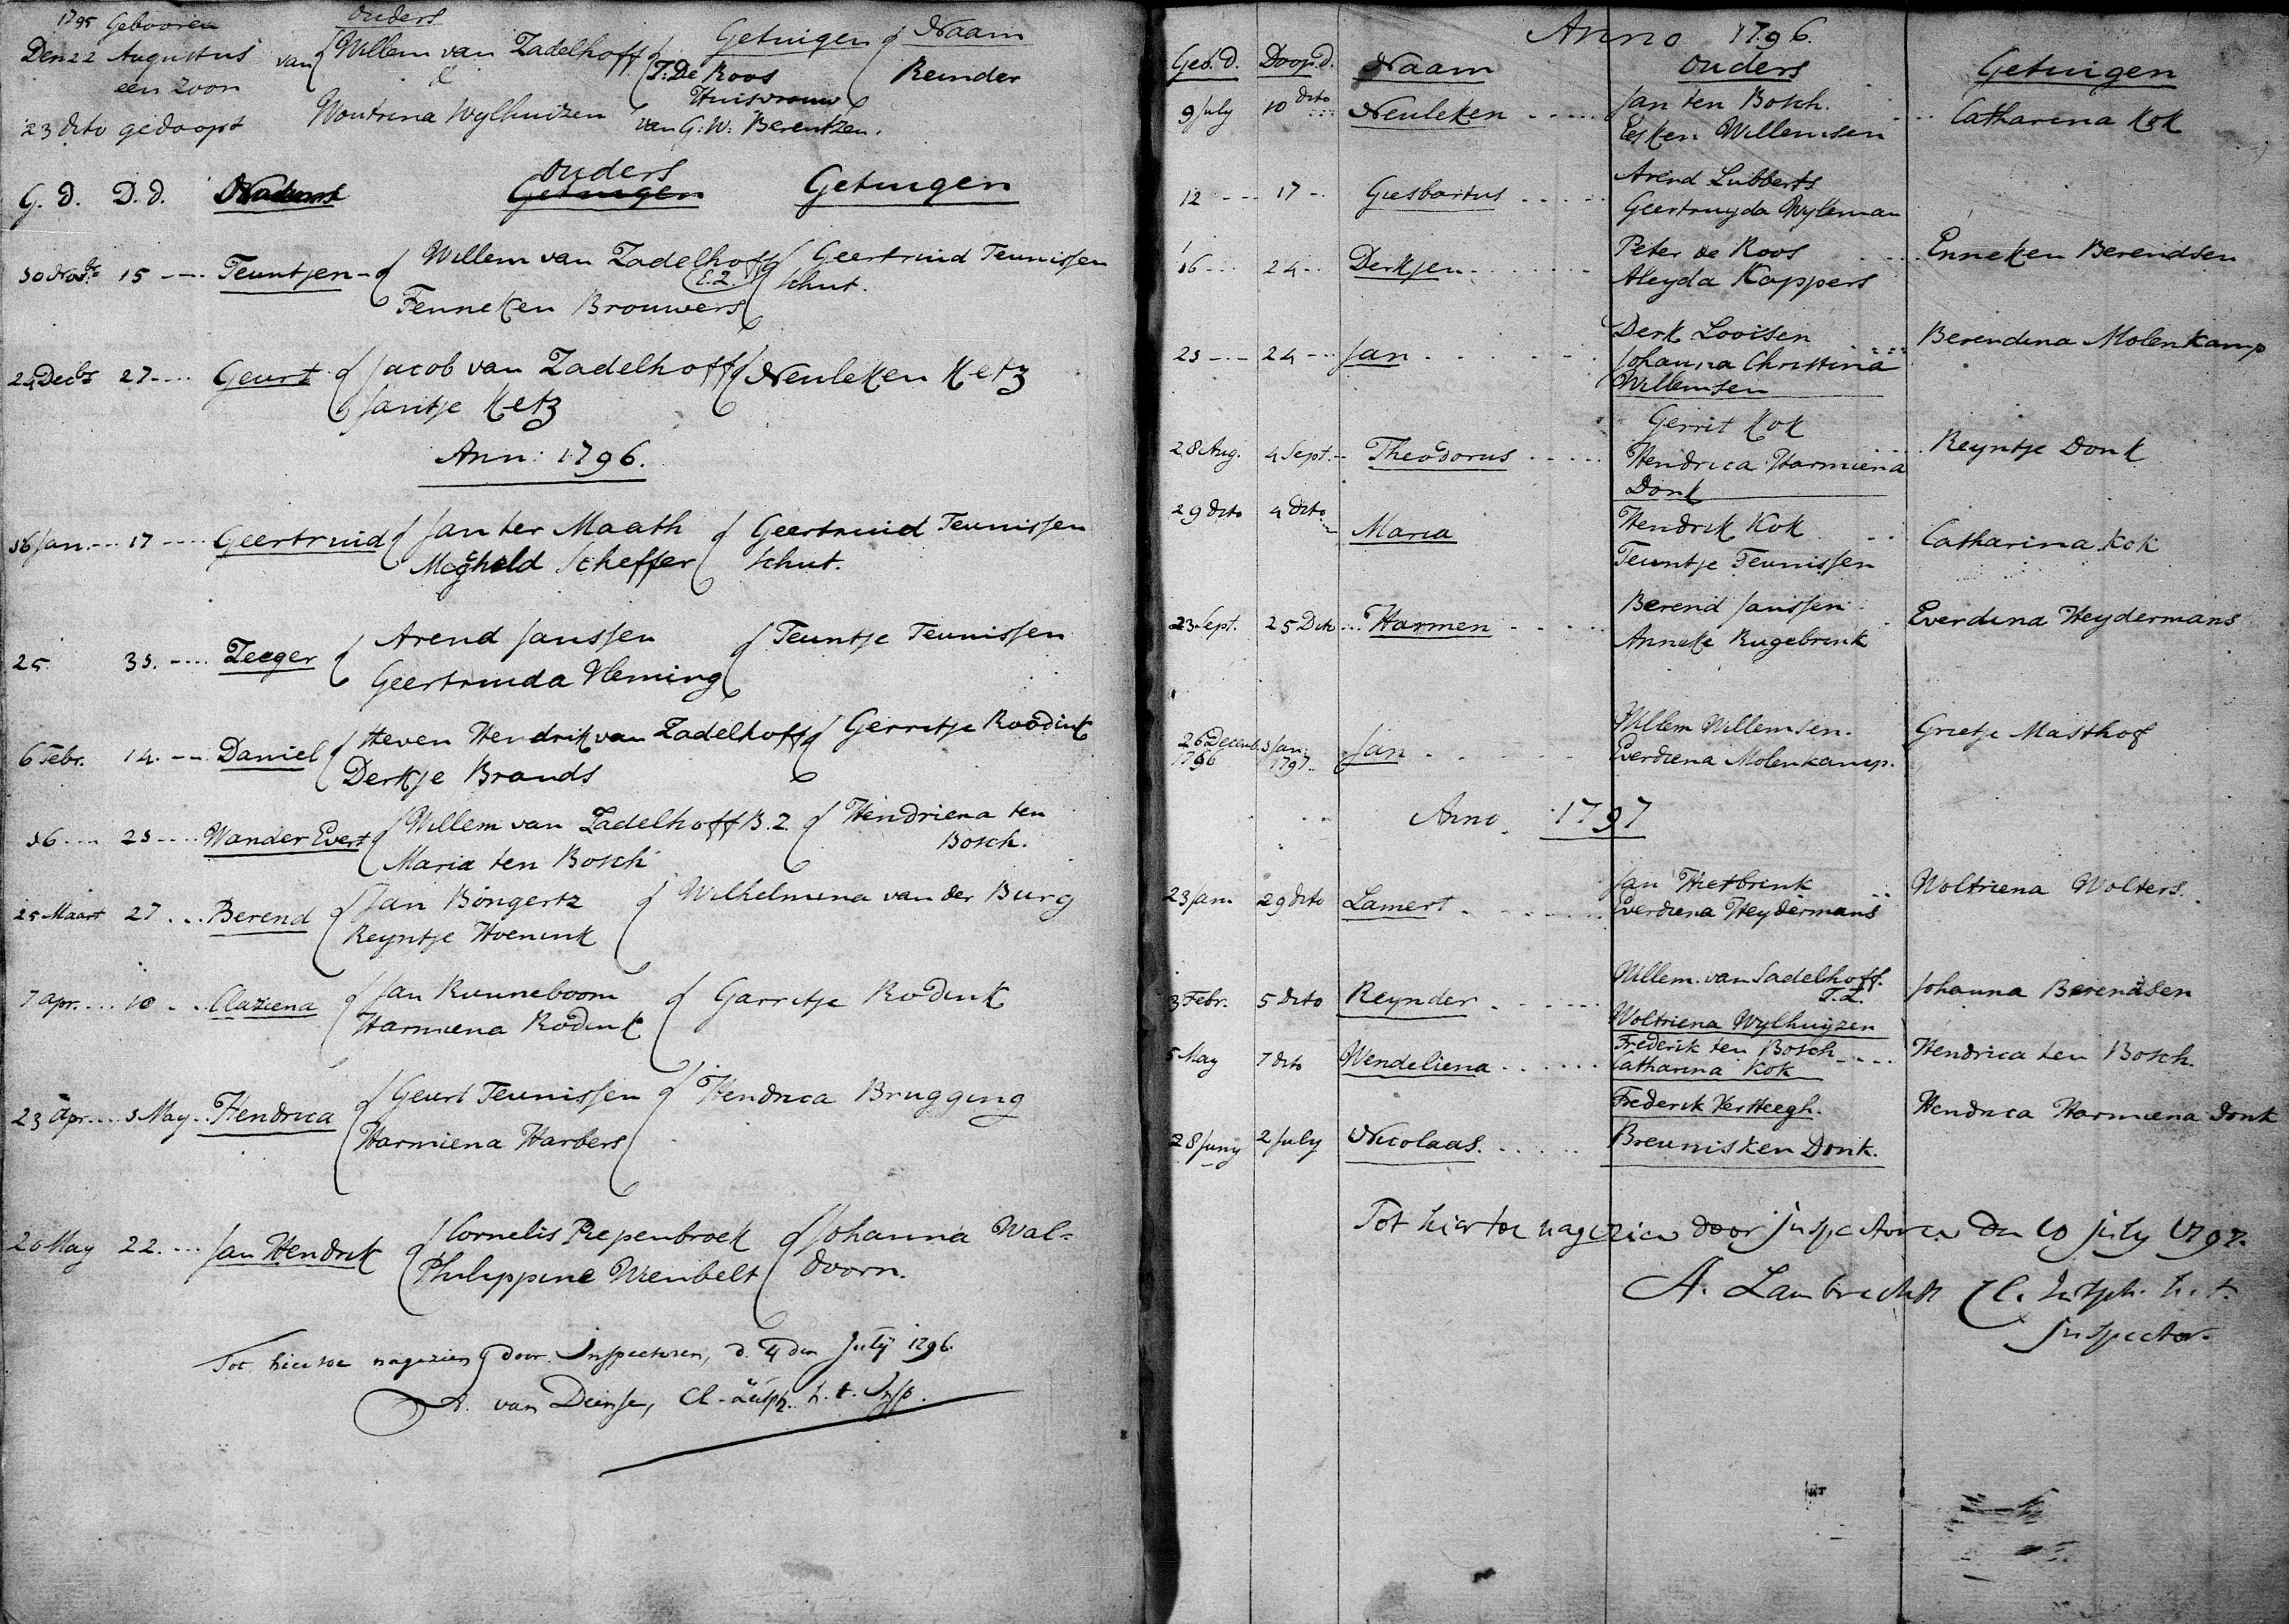 1795 Gebooren ouders Getuigen Naam
Den 22 Augustus van Willem van Zadelhoff T: De Roos Reinder
een Zoon & Huisvrouw
23 dito gedoopt Woutrina Wylhuizen van G: W: Berentzen.
G. d. D. d. ouders Getuigen
Getuigen
30 Nov.br 15 Teuntjen Willem van Zadelhoff Geertruid Teunissen
E.Z. Schut.
Fenneken Brouwers
24 Decbr 27 Geurt Jacob van Zadelhoff Neuleken Ketz
Jantje Ketz
Ann: 1796.
16 Jan. 17 Geertruid Jan ter Maath Geertruid Teunissen
Scheffer Schut.
25 31. Zeeger Arend Janssen Teuntje Teunissen
Geertruida Vleming
6 Febr. 14. Daniel Steven Hendrik van Zadelhoff Gerritje Roodink
Derkje Brands
16 21 Wander Evert Willem van Zadelhoff B.Z. Hendriena ten
Maria ten Bosch Bosch.
25 Maart 27 Berend Jan Böngertz Wilhelmina van der Burg
Reyntje Hoenink
7 apr. 10 Claziena Jan Runneboom Garritje Rodink
Harmiena Rodink
23 apr. 1 May Hendrica Geurt Teunissen Hendrica Brugging
Harmiena Harbers
20 May 22. Jan Hendrik Cornelis Piepenbroek Johanna Wal=
Philippine Wenbelt doorn.
Tot hier toe nagezien door Inspectoren, d. 4 den July 1796.
A. van Deinse, Cl. Zutph. h. t. Insp.
Anno 1796.
Geb. d. Doop d. Naam Ouders Getuigen
9 July 10 dito Neuleken Jan ten Bosch. Catharina Kok
Eesken Willemsen
12 17 Giesbartus Arend Lubberts
Geertruyda Wyleman
16 24 Derkjen Peter de Roos Enneken Berendsen
Aleyda Kappers
21 24 Jan Derk Looisen Berendina Molenkamp
Johanna Christina
Willemsen
28 Aug. 4 Sept. Theodorus Gerrit Kok Reyntje Donk
Hendrica Harmiena
Donk
29 dito 4 dito Maria Hendrik Kok Catharina Kok
Teuntje Teunissen
23 Sept. 25 Dito Harmen Berend Janssen Everdina Heydermans
Anneke Rugebrink
26 Decemb. 1 Jan: Jan Willem Willemsen. Grietje Masthof
1796 1797 Everdiena Molenkamp.
Anno 1797
23 Jan. 29 dito Lamert Jan Hietbrink Woltriena Wolters.
Everdiena Heydermans
3 Febr. 5 dito Reynder Willem van Sadelhoff. Johanna Berendsen
T.Z.
Woltriena Wylhuyzen
5 May 7 dito Wendeliena Frederik ten Bosch Hendrica ten Bosch.
Catharina Kok
28 Juny 2 July Nicolaas. Frederik Versteegh. Hendrica Harmiena Donk
Breunisken Donk.
Tot hier toe nagezien door Inspectoren den 10 july 1797.
A. Lambrechts Cl. Zutph. h. t.
Inspector.